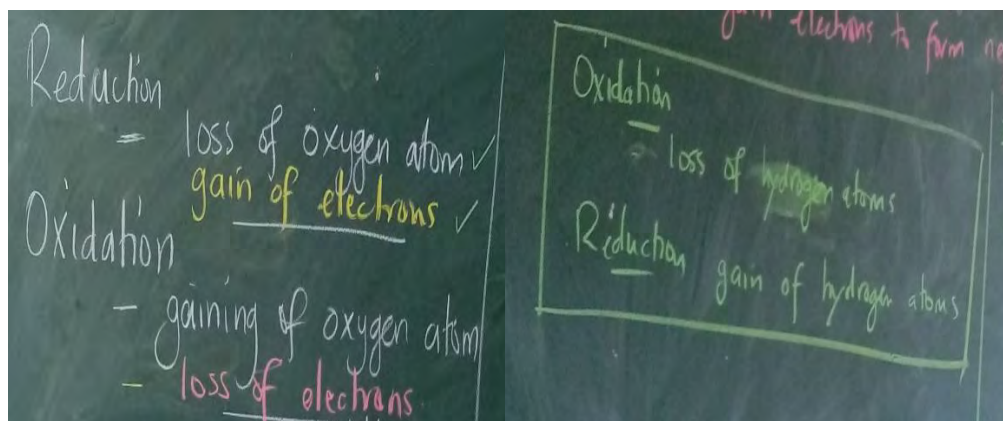 Reduction
= loss of oxygen atom ✓
gain of electrons ✓
Oxidation
- gaining of oxygen atom
- loss of electrons
gain electrons to form
Oxidation
- loss of hydrogen atoms
Reduction gain of hydrogen atoms